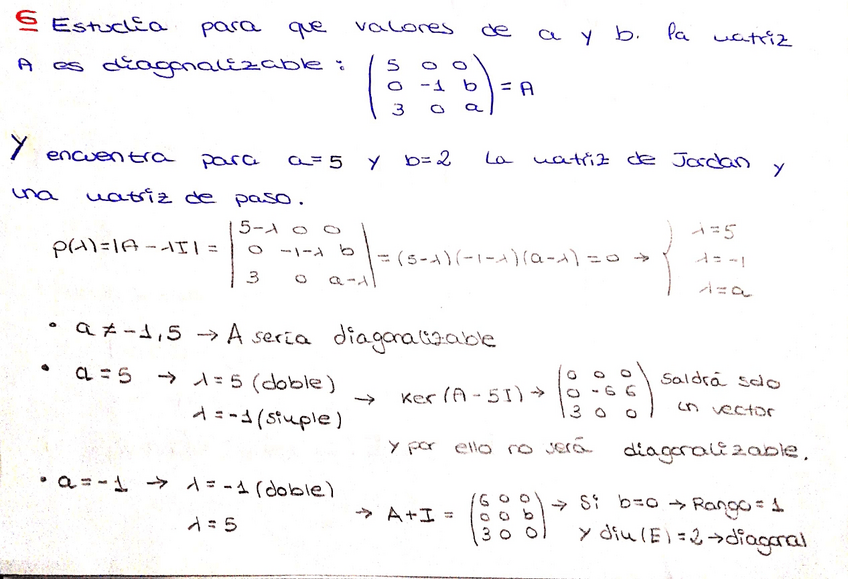 6 Estudia para que valores de a y b. la matriz
A es diagonalizable: (5 0 0
0 -1 b
3 0 a) = A
Y encuentra para a=5 y b=2 la matriz de Jordan y
una matriz de paso.
p(λ)=|A-λI|= |5-λ 0 0
0 -1-λ b
3 0 a-λ| =(5-λ)(-1-λ)(a-λ)=0 → { λ=5
λ=-1
λ=a
• a≠-1,5 → A sería diagonalizable
• a=5 → λ=5 (doble)
λ=-1 (simple) → Ker(A-5I) → (0 0 0
0 -6 6
3 0 0) Saldrá solo
un vector
y por ello no será diagonalizable.
• a=-1 → λ=-1 (doble)
λ=5 → A+I = (6 0 0
0 0 b
3 0 0) → Si b=0 → Rango=1
y dim(E)=2→diagonal